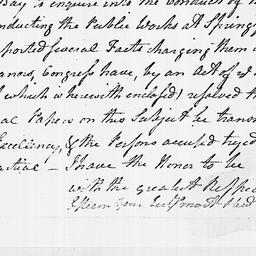 Bay, to enquire into the Conduct of
nducting the Public Works at Spring
ported several Facts charging them
anors, Congress have, by an Act of
of which is herewith enclosed, resolved th
al Papers on this Subject be transm
Excellency, & the Persons accused tryed
actical — I have the Honor to be
with the greatest Respec
Esteem your Exc'ys most Obed